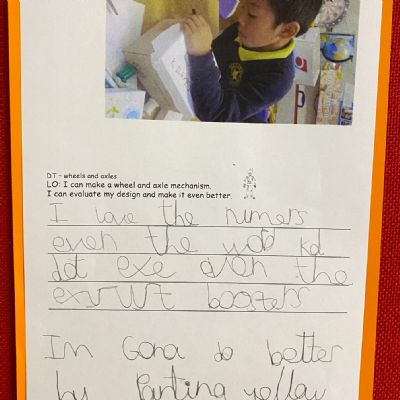 DT - wheels and axles
LO: I can make a wheel and axle mechanism.
I can evaluate my design and make it even better.
I love the numers
even the
dot exe even the
boosters
Im Gona do better
by Panting yellow